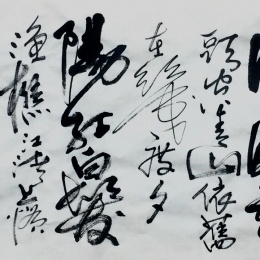 頭空青山依舊
在幾度夕
陽紅白髮
漁樵江渚上慣